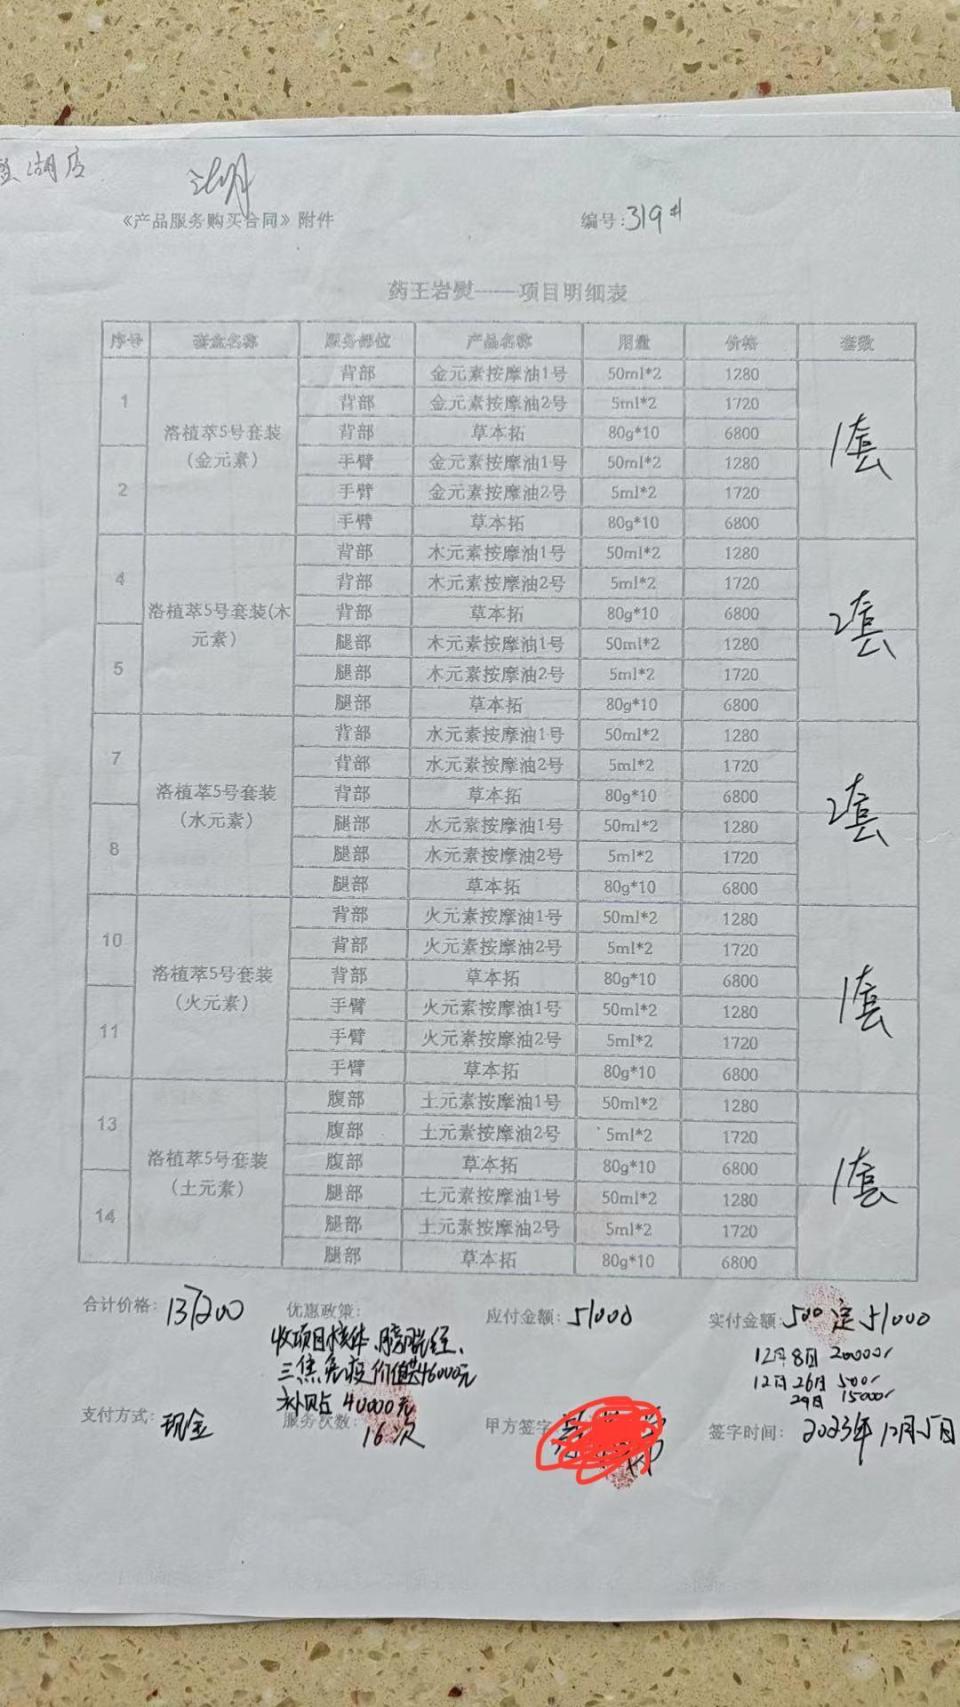 湖店
《产品服务购买合同》附件
编号:319#
药王岩熨——项目明细表
序号 套盒名称 服务部位 产品名称 用量 价格 套数
1 洛植萃5号套装(金元素) 背部 金元素按摩油1号 50ml*2 1280 1套
背部 金元素按摩油2号 5ml*2 1720
背部 草本拓 80g*10 6800
2 手臂 金元素按摩油1号 50ml*2 1280
手臂 金元素按摩油2号 5ml*2 1720
手臂 草本拓 80g*10 6800
4 洛植萃5号套装(木元素) 背部 木元素按摩油1号 50ml*2 1280 2套
背部 木元素按摩油2号 5ml*2 1720
背部 草本拓 80g*10 6800
5 腿部 木元素按摩油1号 50ml*2 1280
腿部 木元素按摩油2号 5ml*2 1720
腿部 草本拓 80g*10 6800
7 洛植萃5号套装(水元素) 背部 水元素按摩油1号 50ml*2 1280 2套
背部 水元素按摩油2号 5ml*2 1720
背部 草本拓 80g*10 6800
8 腿部 水元素按摩油1号 50ml*2 1280
腿部 水元素按摩油2号 5ml*2 1720
腿部 草本拓 80g*10 6800
10 洛植萃5号套装(火元素) 背部 火元素按摩油1号 50ml*2 1280 1套
背部 火元素按摩油2号 5ml*2 1720
背部 草本拓 80g*10 6800
11 手臂 火元素按摩油1号 50ml*2 1280
手臂 火元素按摩油2号 5ml*2 1720
手臂 草本拓 80g*10 6800
13 洛植萃5号套装(土元素) 腹部 土元素按摩油1号 50ml*2 1280 1套
腹部 土元素按摩油2号 5ml*2 1720
腹部 草本拓 80g*10 6800
14 腿部 土元素按摩油1号 50ml*2 1280
腿部 土元素按摩油2号 5ml*2 1720
腿部 草本拓 80g*10 6800
合计价格:137200 优惠政策: 应付金额:51000 实付金额:500 定 51000
收项目 膀胱经、
三焦免疫价值共46000元
补贴40000元
12月8日 20000/
12月26日 500/
29日 15000/
支付方式:现金 服务次数:16次 甲方签字 签字时间:2023年12月5日